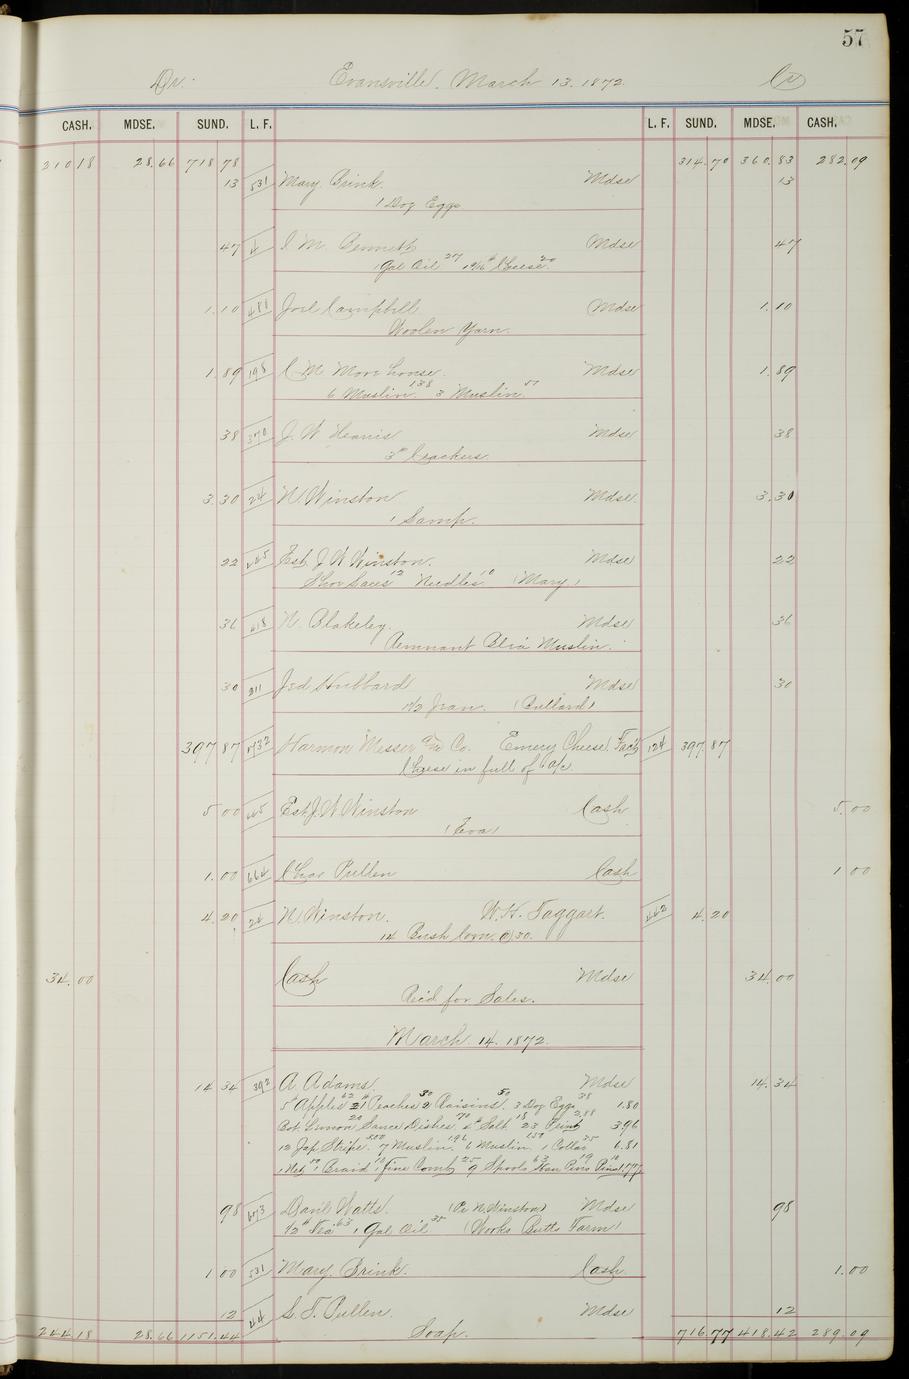 57
Dr. Evansville, March 13. 1872. Cr
CASH. MDSE. SUND. L. F. L. F. SUND. MDSE. CASH.
210 18 28.66 718 78 314.70 360.83 282.09
13 531 Mary Brink. Mdse 13
1 Doz Eggs
47 4 Mdse 47
1 Gal Oil 27 Cheese 20
1.10 481 Joel Campbell Mdse 1.10
Woolen Yarn.
1.89 198 C M Morehouse. Mdse 1.89
6 Muslin 138 3 Muslin 51
38 370 J. W Mdse 38
3# Crackers.
3.30 24 N Winston Mdse. 3.30
1 Lamp.
22 445 Est. J W Winston. Mdse 22
Shoe Laces 12 Needles 10 (Mary)
36 618 N. Blakeley. Mdse 36
Remnant Blea Muslin.
30 211 Jed Hubbard Mdse 30
1 1/2 Jean. (Bullard)
397 87 Harmon Messer & Co. Emery Cheese Fact 124 397.87
Cheese in full of a/c
5 00 445 Est J. W Winston Cash 5.00
(Eva)
1.00 664 Chas Pullen Cash 1 00
4.20 24 N Winston. W. H. Taggart. 442 4.20
14 Bush Corn. @ 30.
34.00 Cash Mdse 34.00
Rec'd for Sales.
March. 14. 1872.
14 34 392 A. Adams. Mdse 14.34
5# Apples 62 21 Peaches 30 2 Raisins 50 3 Doz Eggs 38 1.80
Bot Lemon 20 Sauce Dishes 70 Salt 18 23 Print 2.88 3.96
12 Jap Stripe 300 7 Muslin 196 6 Muslin 150 1 Collar 35 6.81
1 Net 50 1 Braid 10 1 Fine Comb 25 9 Spools 63 Hair Pins 19 Pins 10 1.77
98 673 Davil Watts. (Pr N. Winston) Mdse 98
1/2# Tea 63 1 Gal Oil 35 (Works Butts Farm)
1 00 531 Mary. Brink. Cash 1.00
12 44 S. T. Pullen Mdse 12
Soap.
244 18 28.66 1151.44 716.77 418.42 289.09